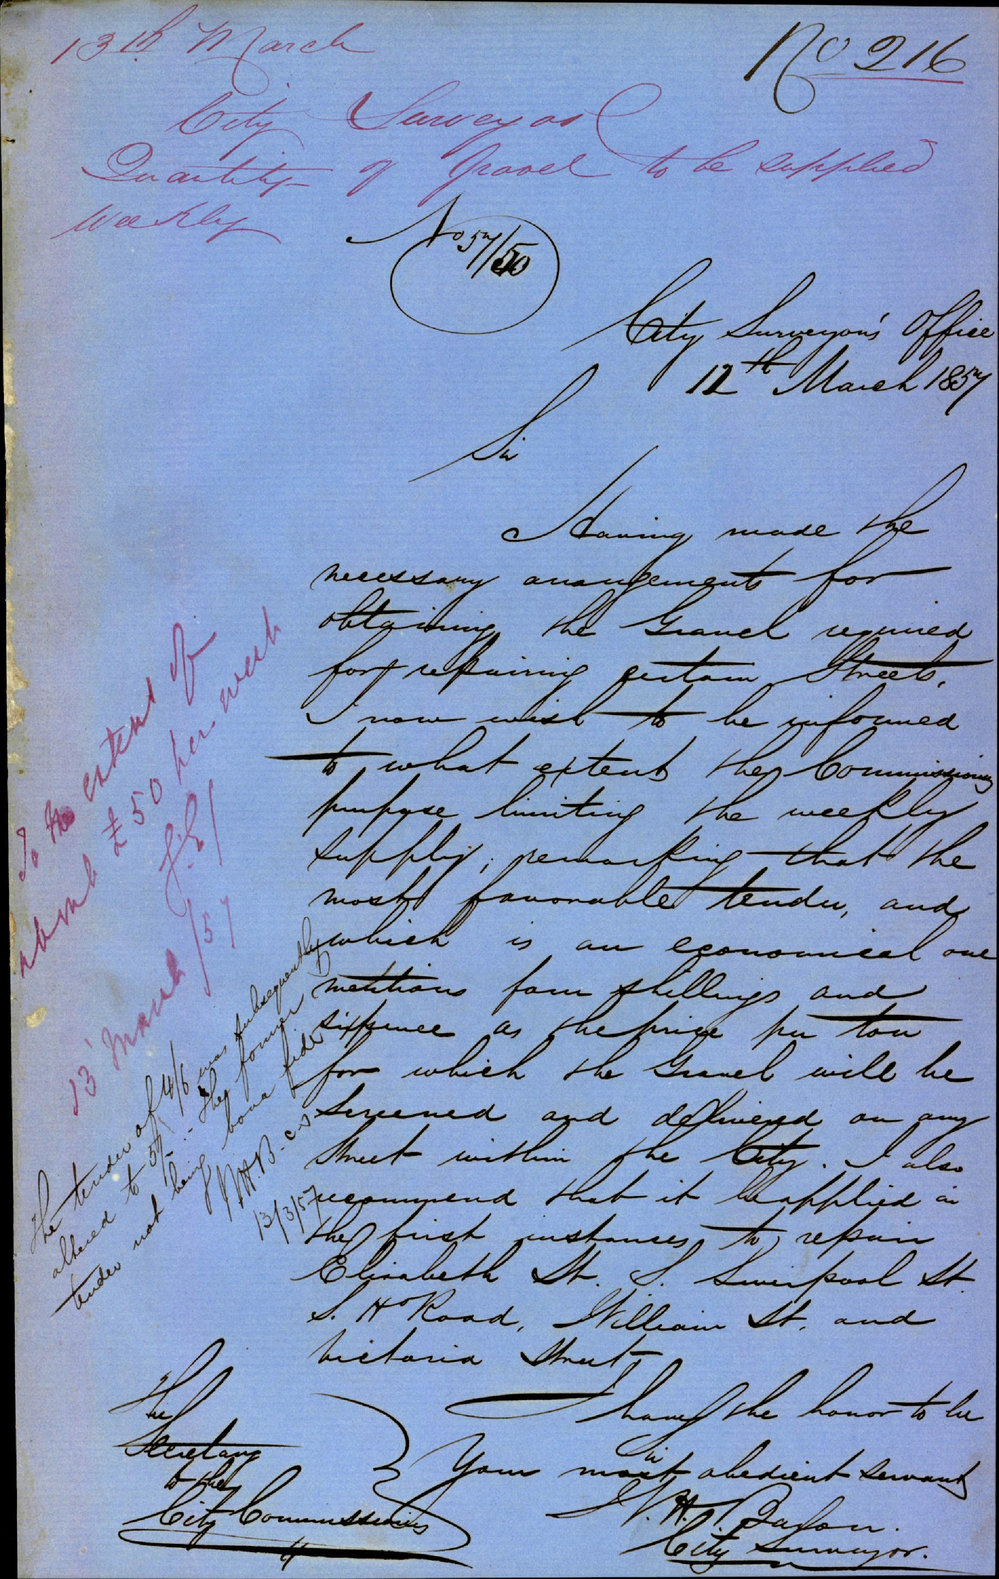 13th March
No 216
City Surveyor
Quantity of Gravel to be supplied
Weekly
No 57/50
City Surveyor's Office
12th March 1857
Sir
Having made the
necessary arrangements for
obtaining the Gravel required
for repairing certain Streets,
I now wish to be informed
to what extent the Commissioners
purpose limiting the weekly
supply; remarking that the
most favorable tender, and
which is an economical one
mentions four shillings and
sixpence as the price per ton
for which the Gravel will be
Screened and delivered on any
Street within the City. I also
recommend that it be applied in
the first instances to repair
Elizabeth St. S. Liverpool St.
S. Hd Road, William St. and
Victoria Street,
I have the honor to be
Sir
Your most obedient servant
W. H.
City Surveyor.
The
Secretary
to the
City Commissioners
To the extent of
£50 per week
13 March /57
The tender of 4/6 was subsequently
altered to 5/- the former
tender not being bona fide
W.H.B. C.S
13/3/57